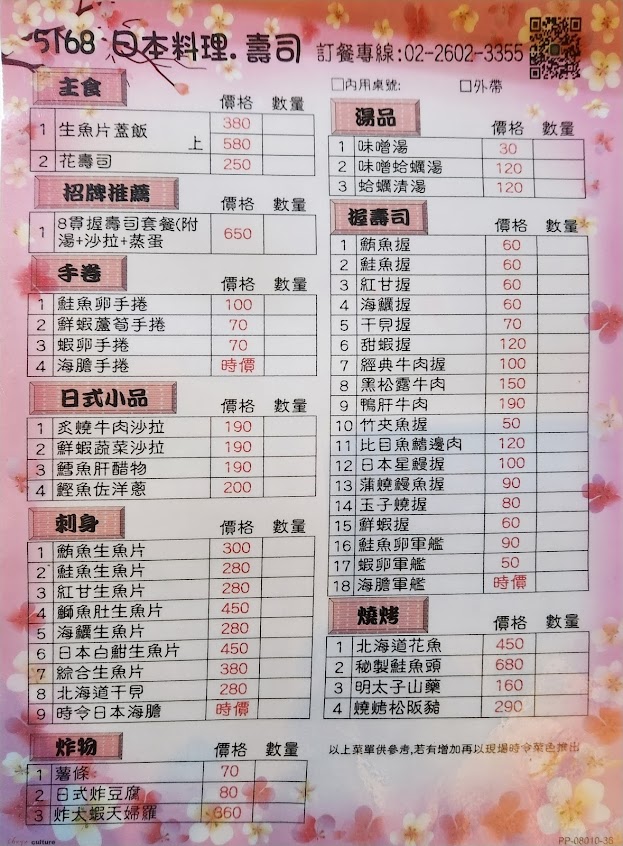 5168 日本料理.壽司 訂餐專線:02-2602-3355
□內用桌號: □外帶
主食 價格 數量
1 生魚片蓋飯 380
上 580
2 花壽司 250
招牌推薦 價格 數量
1 8貫握壽司套餐(附湯+沙拉+蒸蛋 650
手卷 價格 數量
1 鮭魚卵手捲 100
2 鮮蝦蘆筍手捲 70
3 蝦卵手捲 70
4 海膽手捲 時價
日式小品 價格 數量
1 炙燒牛肉沙拉 190
2 鮮蝦蔬菜沙拉 190
3 鱈魚肝醋物 190
4 鰹魚佐洋蔥 200
刺身 價格 數量
1 鮪魚生魚片 300
2 鮭魚生魚片 280
3 紅甘生魚片 280
4 鰤魚肚生魚片 450
5 海鱺生魚片 280
6 日本白魽生魚片 450
7 綜合生魚片 380
8 北海道干貝 280
9 時令日本海膽 時價
炸物 價格 數量
1 薯條 70
2 日式炸豆腐 80
3 炸大蝦天婦羅 360
湯品 價格 數量
1 味噌湯 30
2 味噌蛤蠣湯 120
3 蛤蠣清湯 120
握壽司 價格 數量
1 鮪魚握 60
2 鮭魚握 60
3 紅甘握 60
4 海鱺握 60
5 干貝握 70
6 甜蝦握 120
7 經典牛肉握 100
8 黑松露牛肉 150
9 鴨肝牛肉 190
10 竹夾魚握 50
11 比目魚鰭邊肉 120
12 日本星鰻握 100
13 蒲燒鰻魚握 90
14 玉子燒握 80
15 鮮蝦握 60
16 鮭魚卵軍艦 90
17 蝦卵軍艦 50
18 海膽軍艦 時價
燒烤 價格 數量
1 北海道花魚 450
2 秘製鮭魚頭 680
3 明太子山藥 160
4 燒烤松阪豬 290
以上菜單供參考,若有增加再以現場時令菜色推出
culture
PP-08010-38